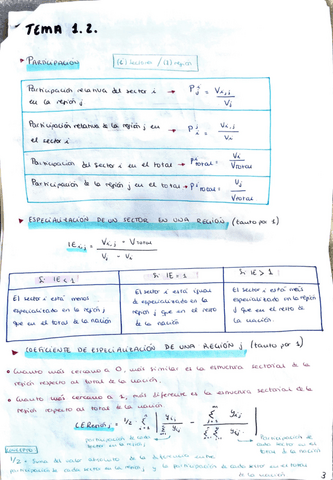 TEMA 1.2.
▸ PARTICIPACIÓN (i) Sectores / (j) región
Participación relativa del sector i en la región j → P^i_j = V_{i,j} / V_j
Participación relativa de la región j en el sector i → P^j_i = V_{i,j} / V_i
Participación del sector i en el total → P^i_TOTAL = V_i / V_TOTAL
Participación de la región j en el total → P^j_TOTAL = V_j / V_TOTAL
▸ ESPECIALIZACIÓN DE UN SECTOR EN UNA REGIÓN (tanto por 1)
IE_{i,j} = V_{i,j} · V_TOTAL / V_j · V_i
Si IE < 1
Si IE = 1
Si IE > 1
El sector i está menos especializado en la región j que en el total de la nación
El sector i está igual de especializado en la región j que en el resto de la nación
El sector i está más especializado en la región j que en el resto de la nación.
▸ COEFICIENTE DE ESPECIALIZACIÓN DE UNA REGIÓN j (tanto por 1)
• Cuanto más cercano a 0, más similar es la estructura sectorial de la
región respecto al total de la nación.
• Cuanto más cercano a 1, más diferente es la estructura sectorial de la
región respecto al total de la nación.
participación de cada sector en la región j
participación de cada sector en el total de la nación
1/2 · Suma del valor absoluto de la diferencia entre
participación de cada sector en la región j y la participación de cada sector en el total
de la nación
3